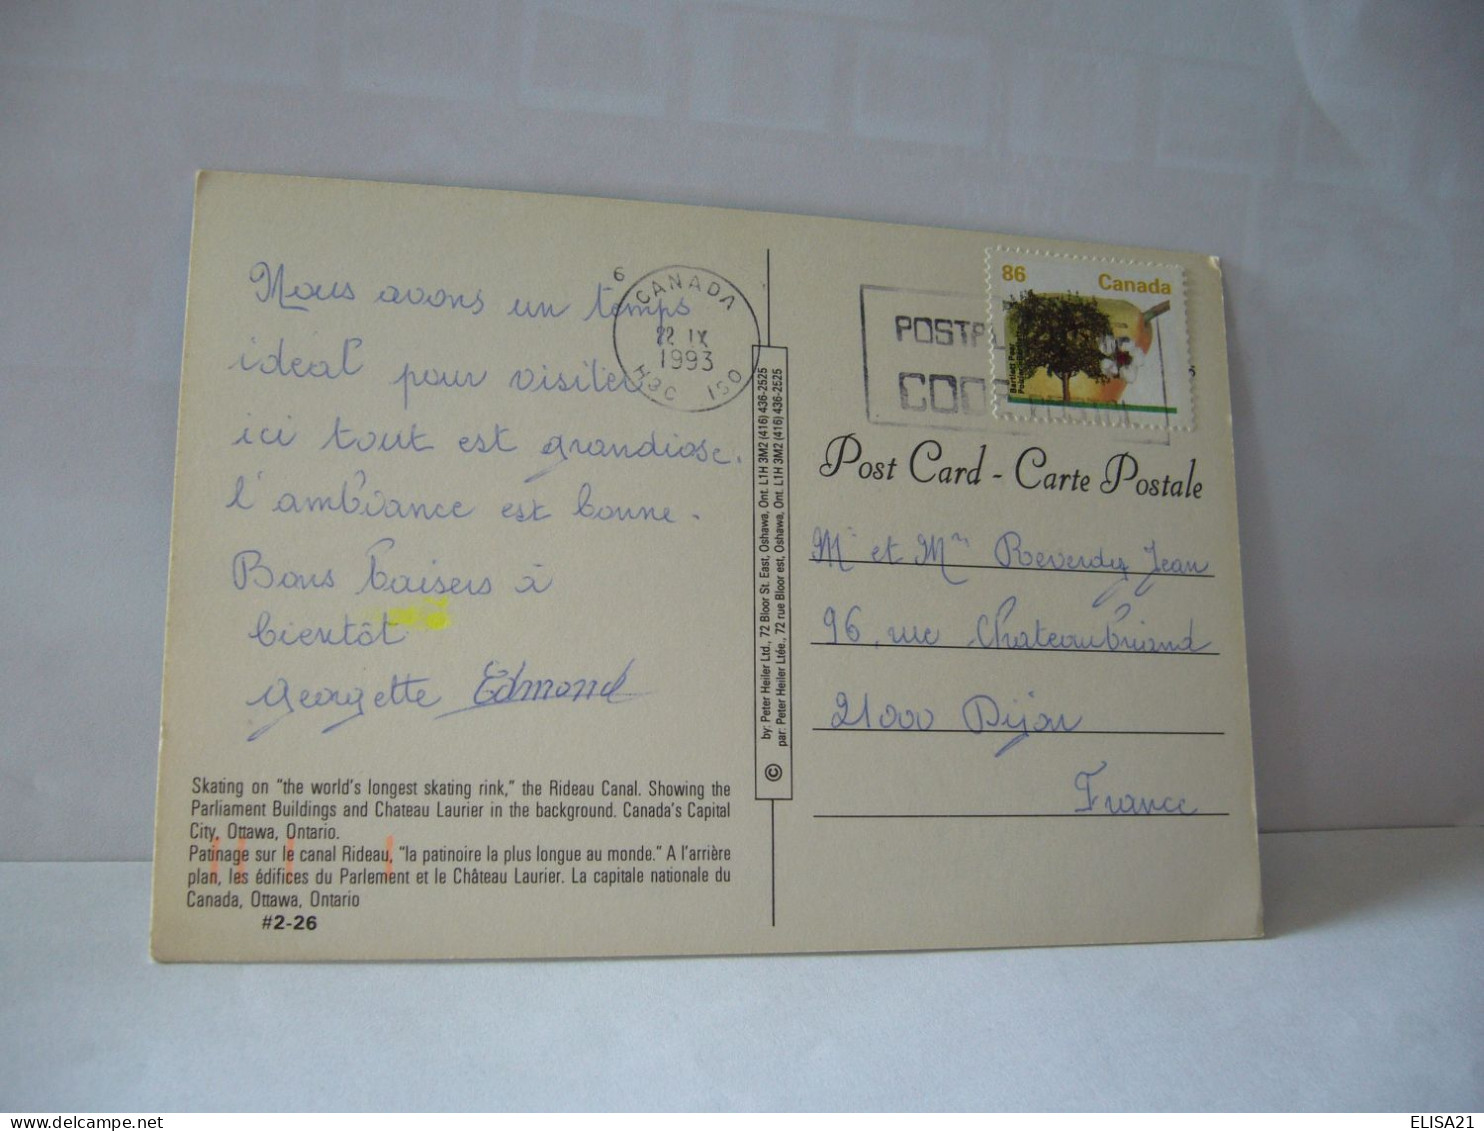 Nous avons un temps
idéal pour visiter
ici tout est grandiose.
l'ambiance est bonne.
Bons baisers à
bientôt
Georgette Edmond
6
CANADA
22 IX
1993
H3C 1S0
86 Canada
Bartlett Pear
POSTAL
CODE
Post Card - Carte Postale
Mr et Mme Reverdy Jean
96, rue Chateaubriand
21000 Dijon
France
© by: Peter Heiler Ltd., 72 Bloor St. East, Oshawa, Ont. L1H 3M2 (416) 436-2525
par: Peter Heiler Ltée., 72 rue Bloor est, Oshawa, Ont. L1H 3M2 (416) 436-2525
Skating on "the world's longest skating rink," the Rideau Canal. Showing the
Parliament Buildings and Chateau Laurier in the background. Canada's Capital
City, Ottawa, Ontario.
Patinage sur le canal Rideau, "la patinoire la plus longue au monde." A l'arrière
plan, les édifices du Parlement et le Château Laurier. La capitale nationale du
Canada, Ottawa, Ontario
#2-26
ELISA21